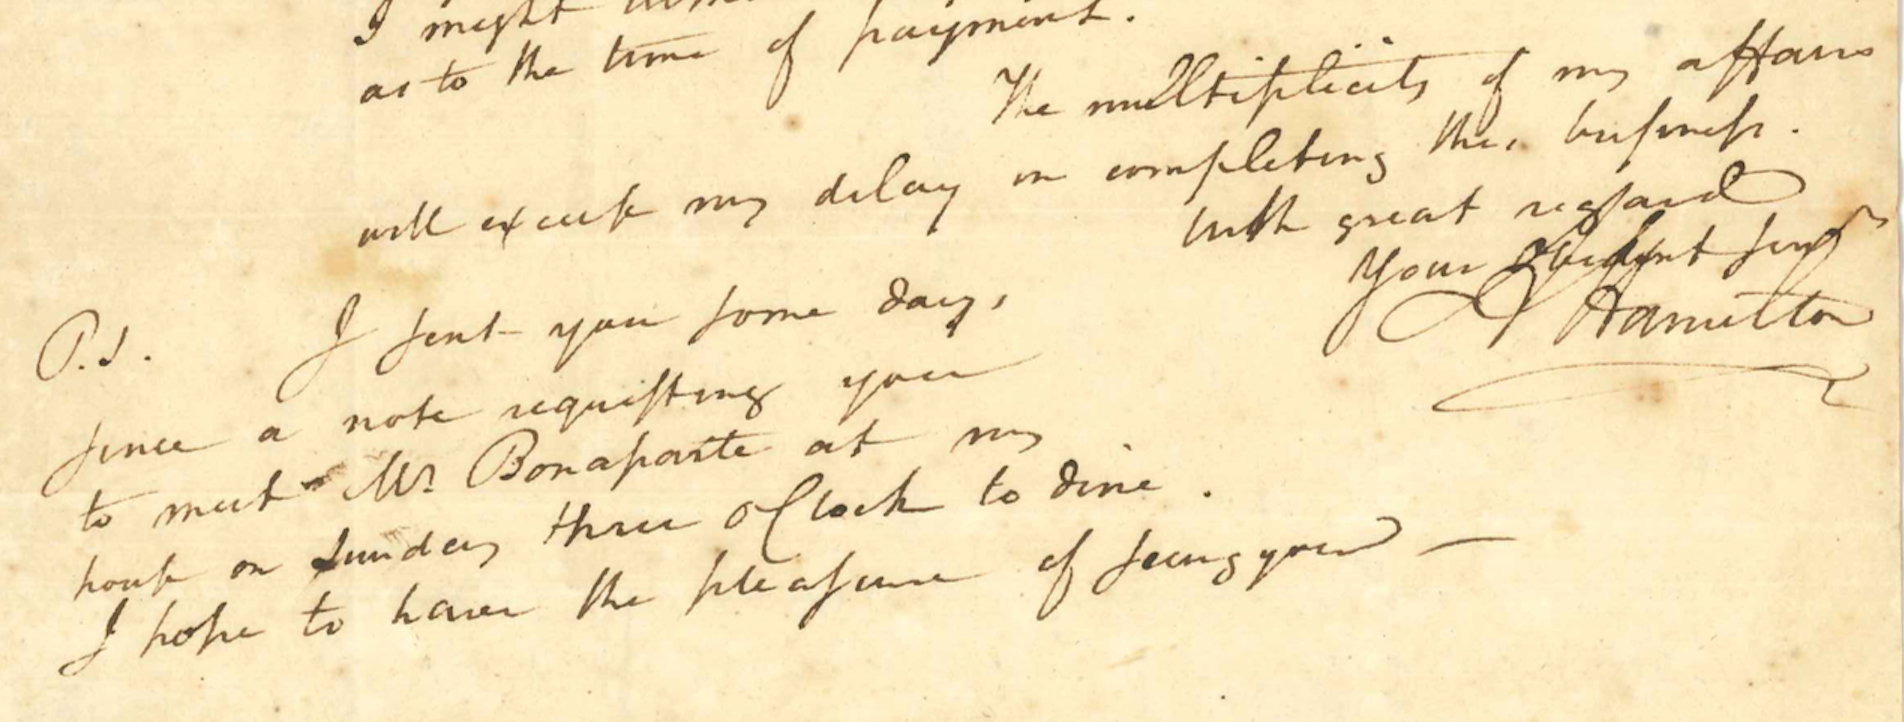 I might
as to the time of payment.
The multiplicity of my affairs
will excuse my delay in completing this business.
With great regard
Your Obedient serv
A Hamilton
P.S. I sent you some days
since a note requesting you
to meet Mr Bonaparte at my
house on Sunday three oClock to dine.
I hope to have the pleasure of seeing you —